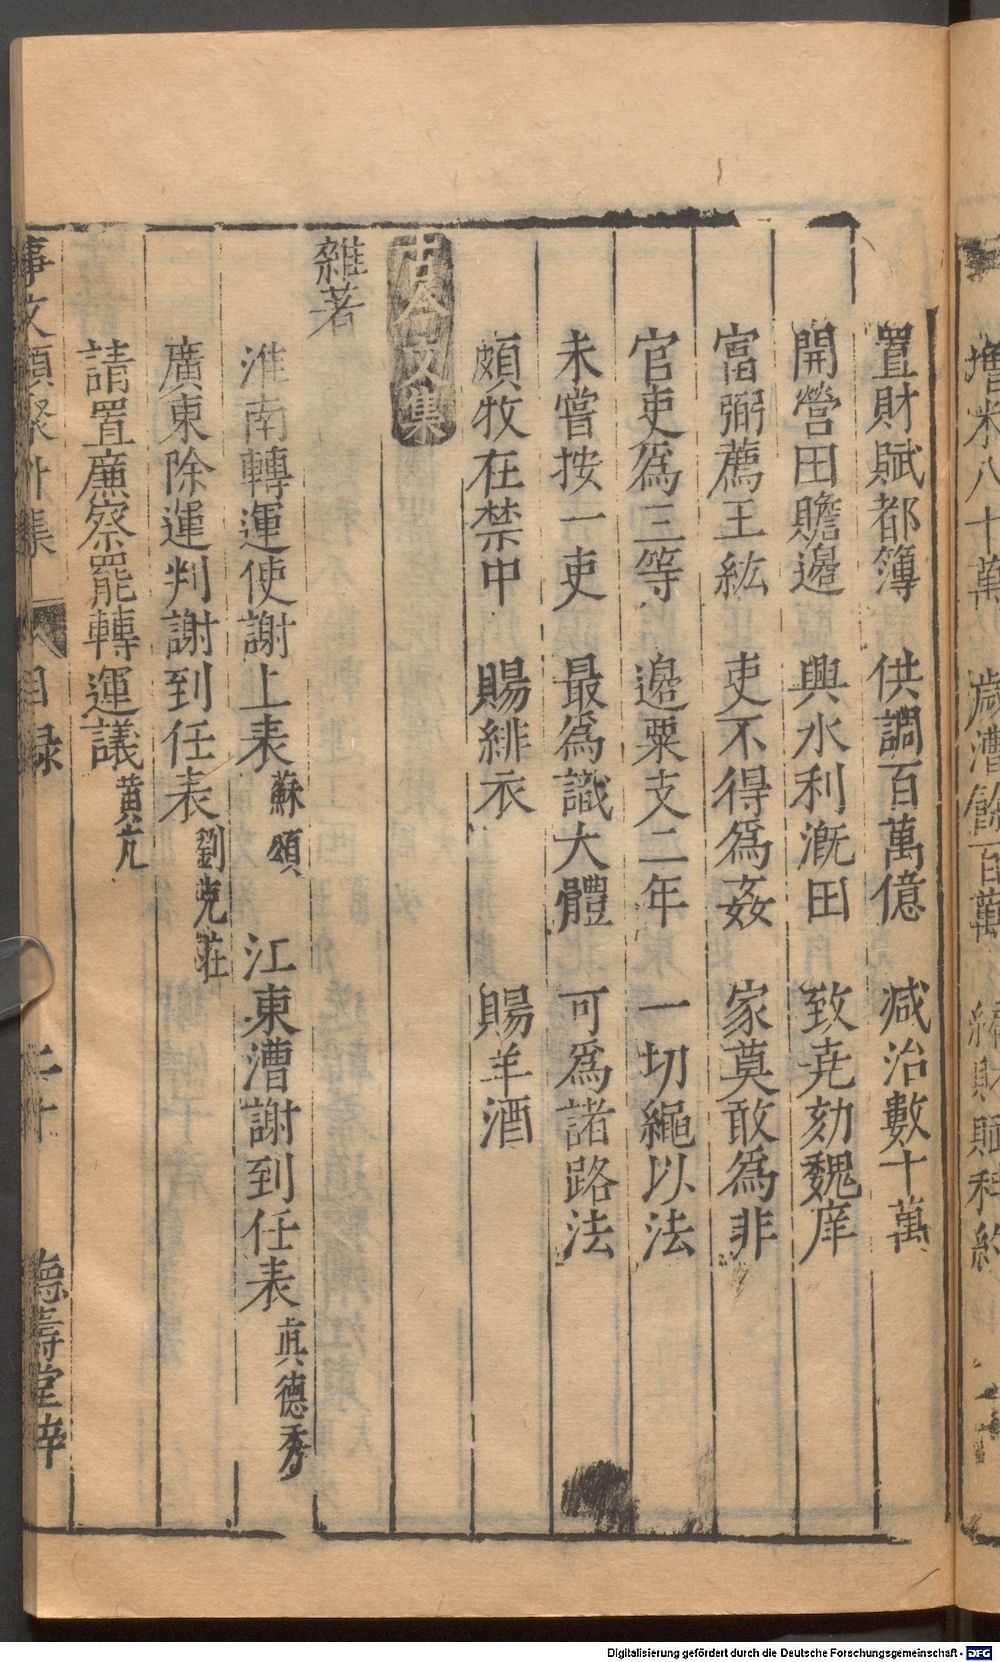 置財賦都簿　供調百萬億　減治數十萬
開營田贍邊　興水利漑田　致堯劾魏庠
富弼薦王紘　吏不得爲姦　家莫敢爲非
官吏爲三等　邊粟支二年　一切繩以法
未嘗按一吏　最爲識大體　可爲諸路法
頗牧在禁中　賜緋衣　賜羊酒
古今文集
雜著
淮南轉運使謝上表蘇頌　江東漕謝到任表真德秀
廣東除運判謝到任表劉克莊
請置廉察罷轉運議黃亢
事文類聚外集　目録　德壽堂梓
歲漕餘百萬
Digitalisierung gefördert durch die Deutsche Forschungsgemeinschaft - DFG